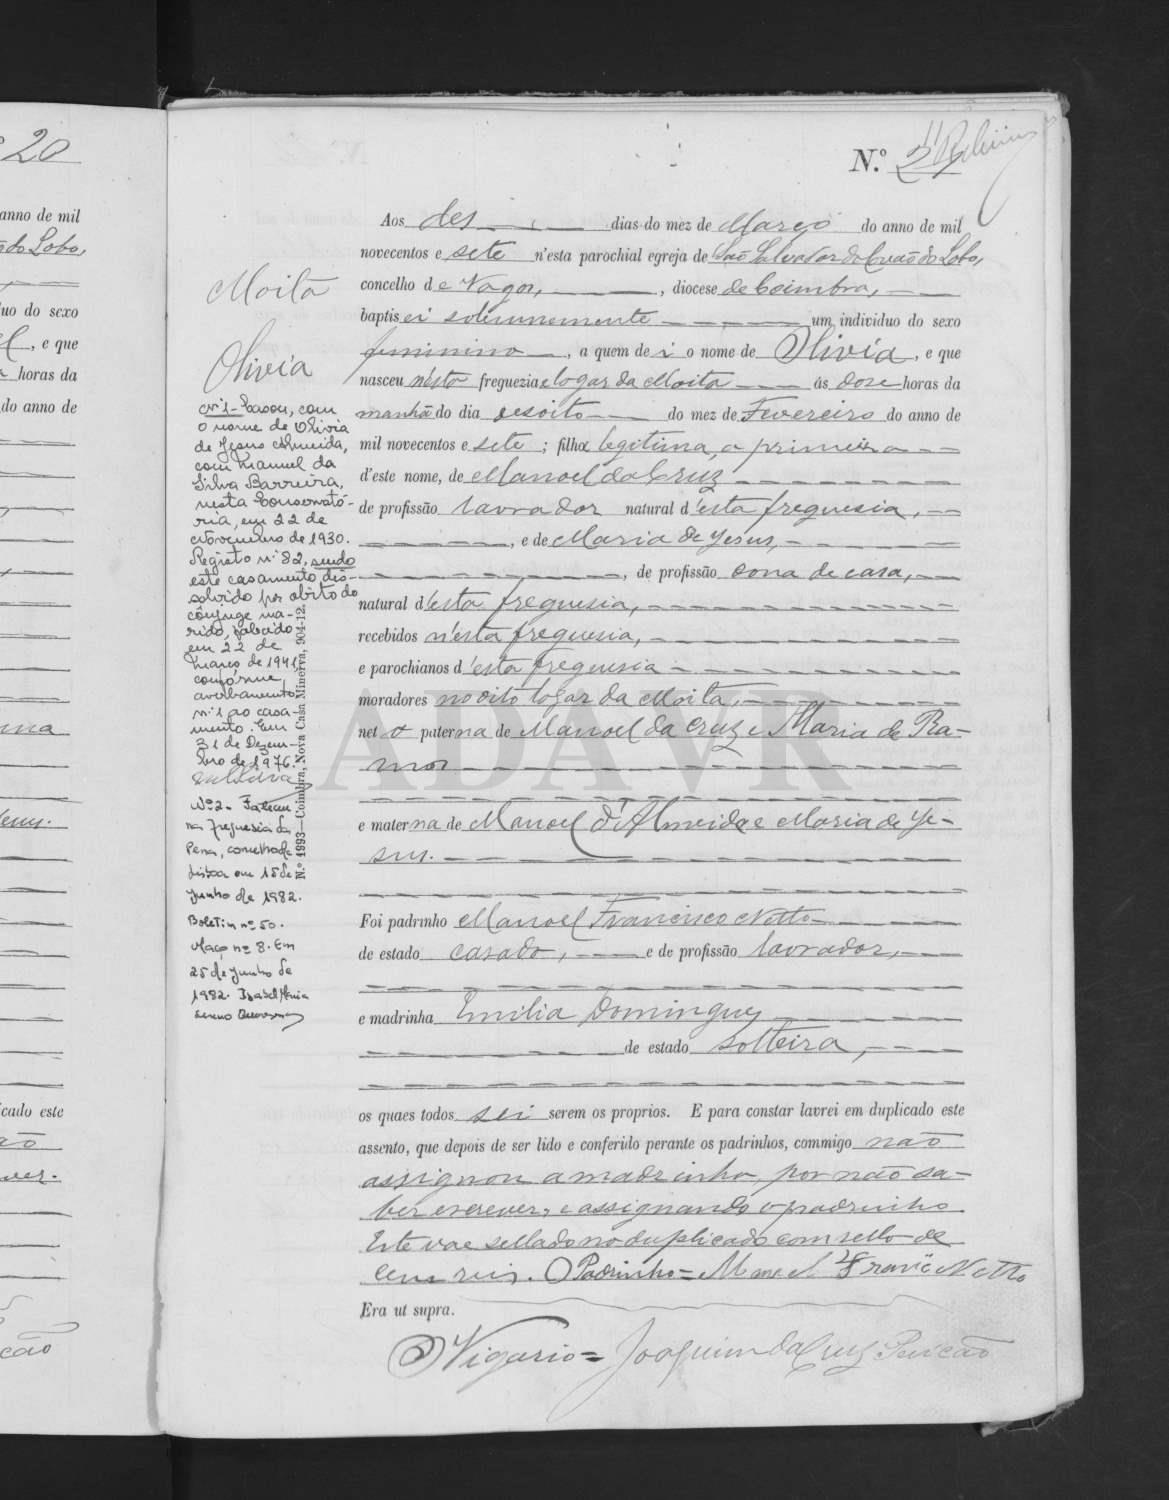 º 20
anno de mil
do Lobo,
uo do sexo
l, e que
horas da
do anno de
cado este
ão
ver.
cão
N.º 21
Moita
Olivia
Nº 1 - Casou, com
o nome de Olivia
de Jesus Almeida,
com Manuel da
Silva Barreira,
nesta Conservató-
ria, em 22 de
Novembro de 1930.
Registo nº 82, sendo
este casamento dis-
solvido por obito do
cônjuge ma-
rido, falecido
em 22 de
março de 1941,
conforme
averbamento
nº 1 ao casa-
mento. Em
31 de Dezem-
bro de 1976.
Nº 2 - Faleceu
na freguesia da
Pena, concelho de
Lisboa em 15 de
Junho de 1982.
Boletim nº 50.
Maço nº 8. Em
25 de Junho de
1982. Isabel Maria
N.º 1993—Coimbra, Nova Casa Minerva, 904-12.
Aos des dias do mez de Março do anno de mil
novecentos e sete n'esta parochial egreja de São Salvador do Covão do Lobo,
concelho de Vagos, , diocese de Coimbra,
baptisei solemnemente um individuo do sexo
feminino , a quem dei o nome de Olivia , e que
nasceu n'esta freguezia e logar da Moita ás doze horas da
manhã do dia desoito do mez de Fevereiro do anno de
mil novecentos e sete ; filha legitima, a primeira
d'este nome, de Manoel da Cruz
de profissão lavrador natural d'esta freguesia,
, e de Maria de Jesus,
, de profissão dona de casa,
natural d'esta freguesia,
recebidos n'esta freguesia,
e parochianos d'esta freguesia
moradores no dito logar da Moita,
neta paterna de Manoel da Cruz e Maria de Ra-
mos
e materna de Manoel d'Almeida e Maria de Je-
sus.
Foi padrinho Manoel Francisco Netto
de estado casado, e de profissão lavrador,
e madrinha Emilia Domingues
de estado solteira,
os quaes todos sei serem os proprios. E para constar lavrei em duplicado este
assento, que depois de ser lido e conferido perante os padrinhos, commigo não
assignou a madrinha, por não sa-
ber escrever, e assignando o padrinho
Este vae sellado no duplicado com sello de
cem reis. O Padrinho = Manoel Francº Netto
Era ut supra.
O Vigario = Joaquim da Cruz
ADAVR